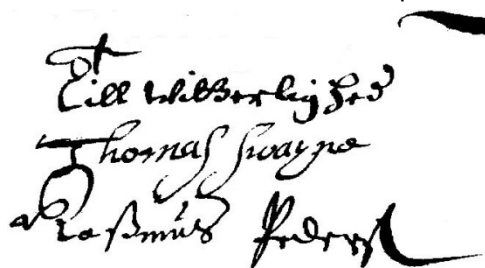 Till Witterlighed
Thomas Swayne
Rasmus Peders